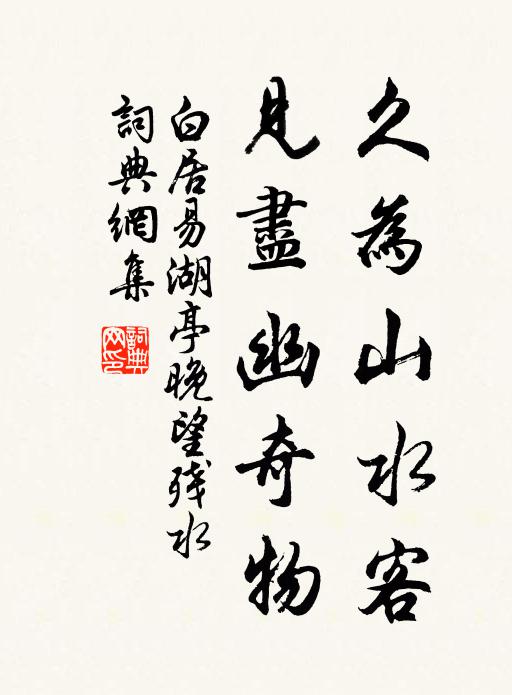 久為山水客
見盡幽奇物
白居易湖亭晚望残水
詞典網集
詞典网印